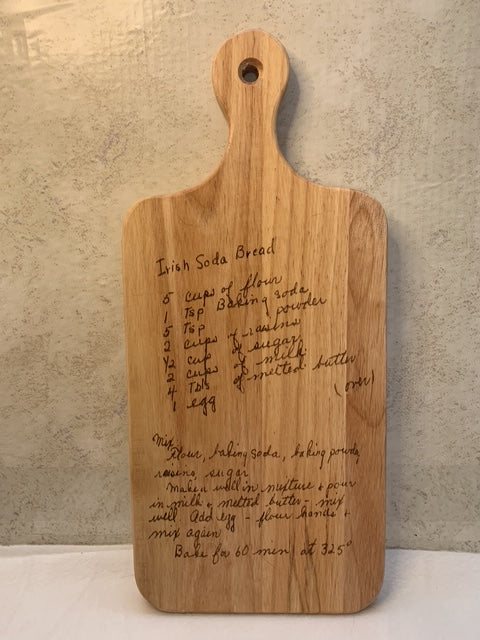 Irish Soda Bread
5 cups of flour
1 Tsp Baking soda
5 Tsp powder
2 cups of raisins
1/2 cup of sugar
2 cup of milk
4 Tbs of melted butter
1 egg
(over)
Mix
Flour, baking soda, baking powder,
raisins, sugar
Make a well in mixture & pour
in milk & melted butter - mix
well. Add egg - flour hands &
mix again
Bake for 60 min at 325°